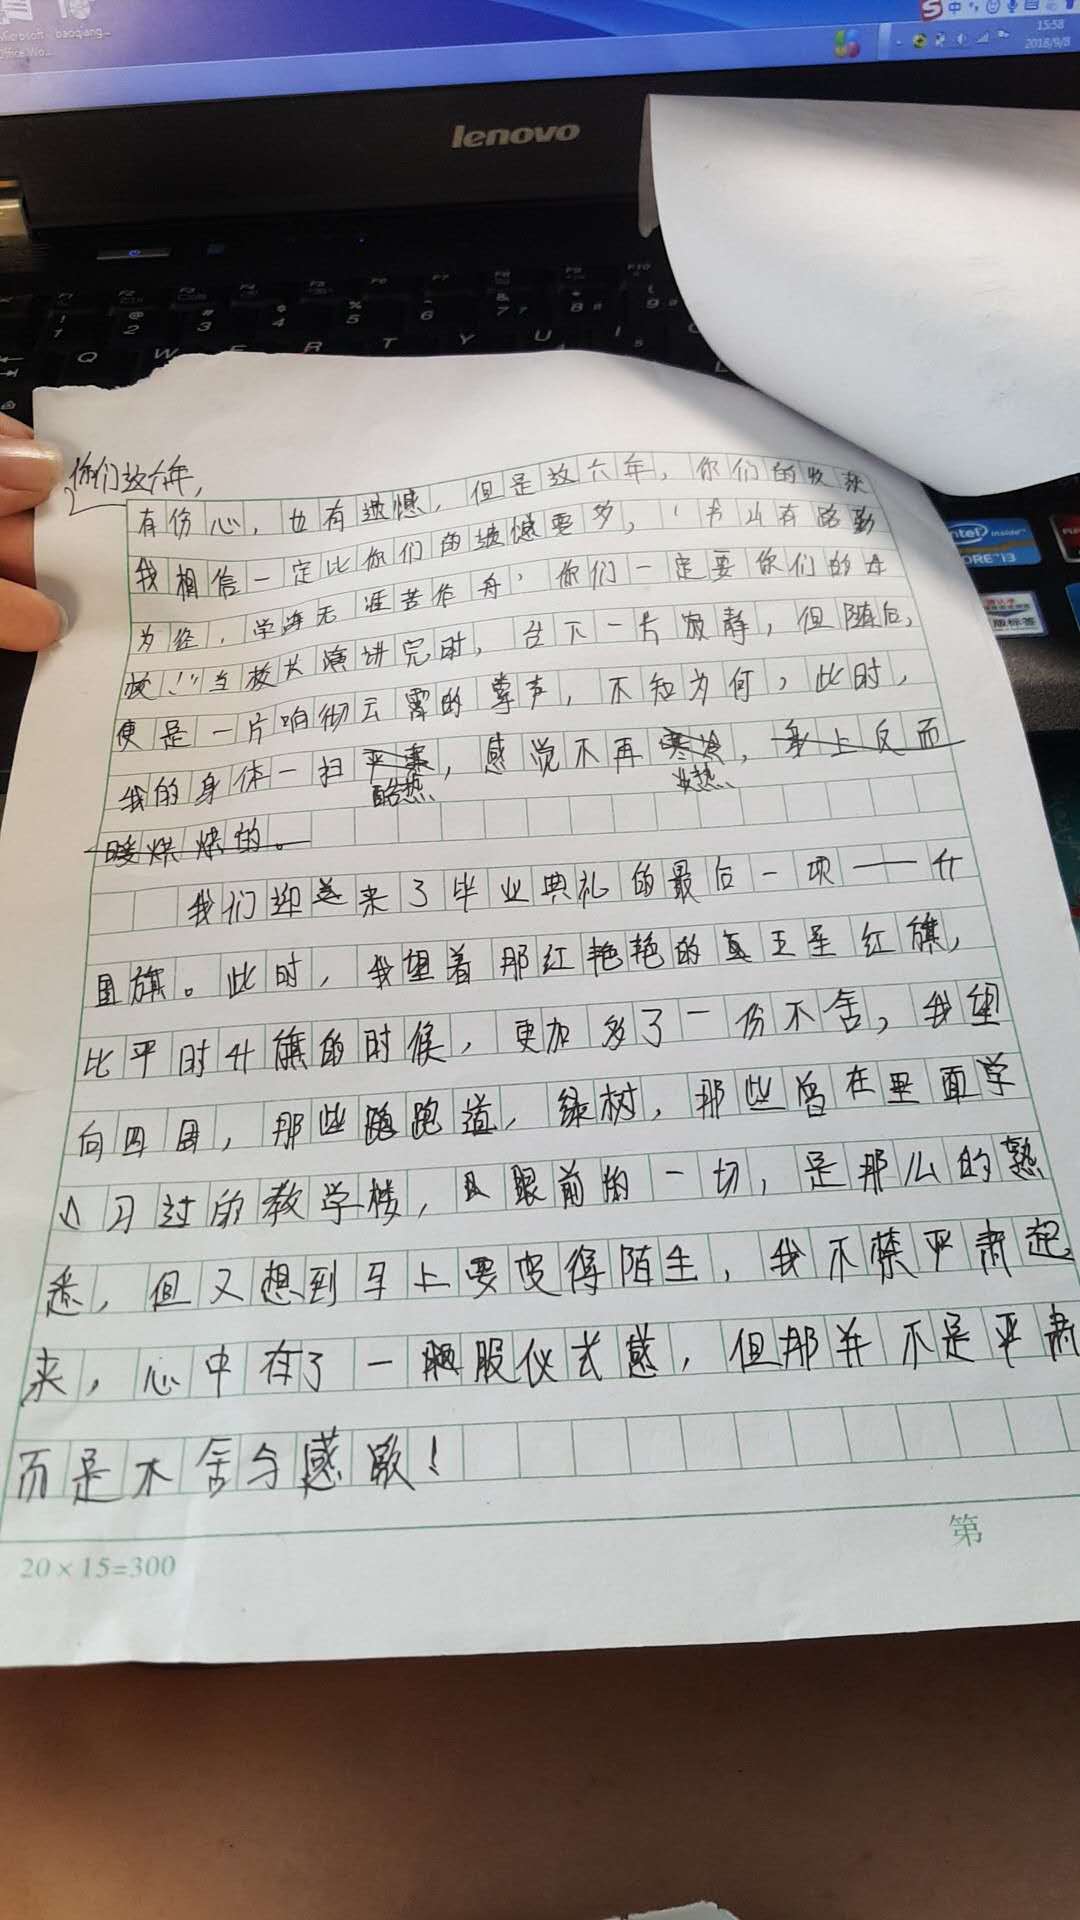 Microsoft
Office Wo...
baoqiang...
中
15:58
2018/9/8
lenovo
F1 F2 F3 F4 F5 F6 F7 F8 F9 F10
! 1 @ 2 # 3 $ 4 % 5 6 & 7 * 8 ( 9
Q W E R T Y U I
intel inside
CORE i3
版标签
你们这六年，
有伤心，也有遗憾，但是这六年，你们的收获
我相信一定比你们的遗憾要多，“书山有路勤
为径，学海无涯苦作舟，你们一定要你们的母
校！”当校长演讲完时，台下一片寂静，但随后，
便是一片响彻云霄的掌声，不知为何，此时，
我的身体一扫严寒，感觉不再寒冷，身上反而
酷热 炎热
暖烘烘的。
我们迎来了毕业典礼的最后一项——升
国旗。此时，我望着那红艳艳的五星红旗，
比平时升旗的时候，更加多了一份不舍，我望
向四周，那些跑道，绿树，那些曾在里面学
习过的教学楼，眼前的一切，是那么的熟
悉，但又想到马上要变得陌生，我不禁严肃起
来，心中有了一股仪式感，但那并不是严肃
而是不舍与感激！
20×15=300
第